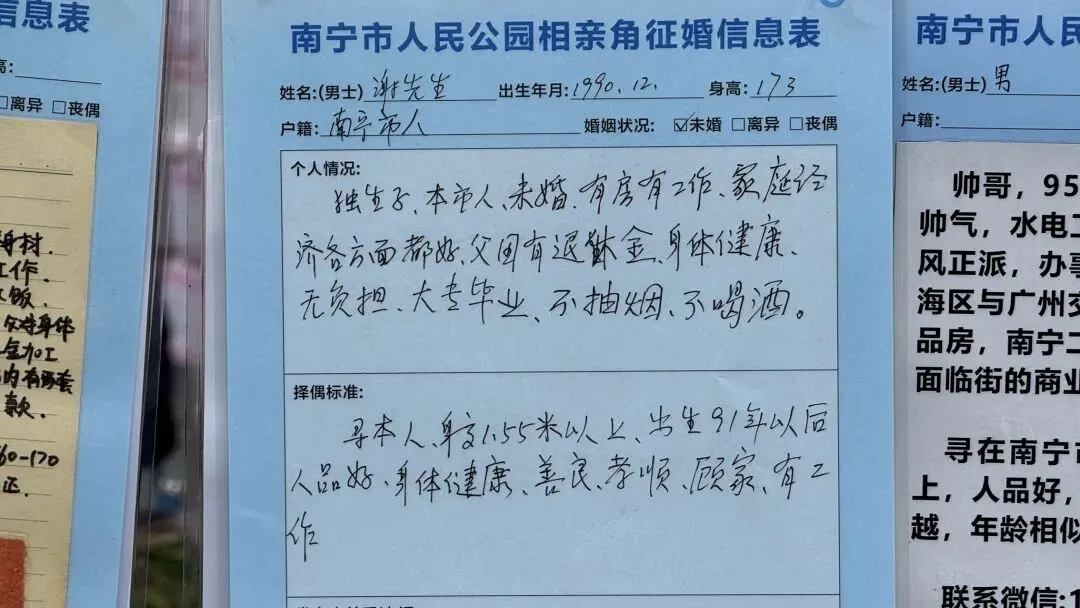 息表
高:
□离异 □丧偶
身材.
工作.
饭.
60-170
正.
南宁市人民公园相亲角征婚信息表
姓名:(男士) 谢先生 出生年月: 1990.12. 身高: 173
户籍: 南宁市人 婚姻状况: ☑未婚 □离异 □丧偶
个人情况:
独生子、本市人、未婚、有房有工作、家庭经
济各方面都好、父母有退休金、身体健康、
无负担、大专毕业、不抽烟、不喝酒。
择偶标准:
寻本人、身高1.55米以上、出生91年以后
人品好、身体健康、善良、孝顺、顾家、有工
作
南宁市人民
姓名:(男士) 男
户籍:
帅哥，95
帅气，水电工
风正派，办事
海区与广州交
品房，南宁二
面临街的商业
寻在南宁市
上，人品好，
越，年龄相似
联系微信:1